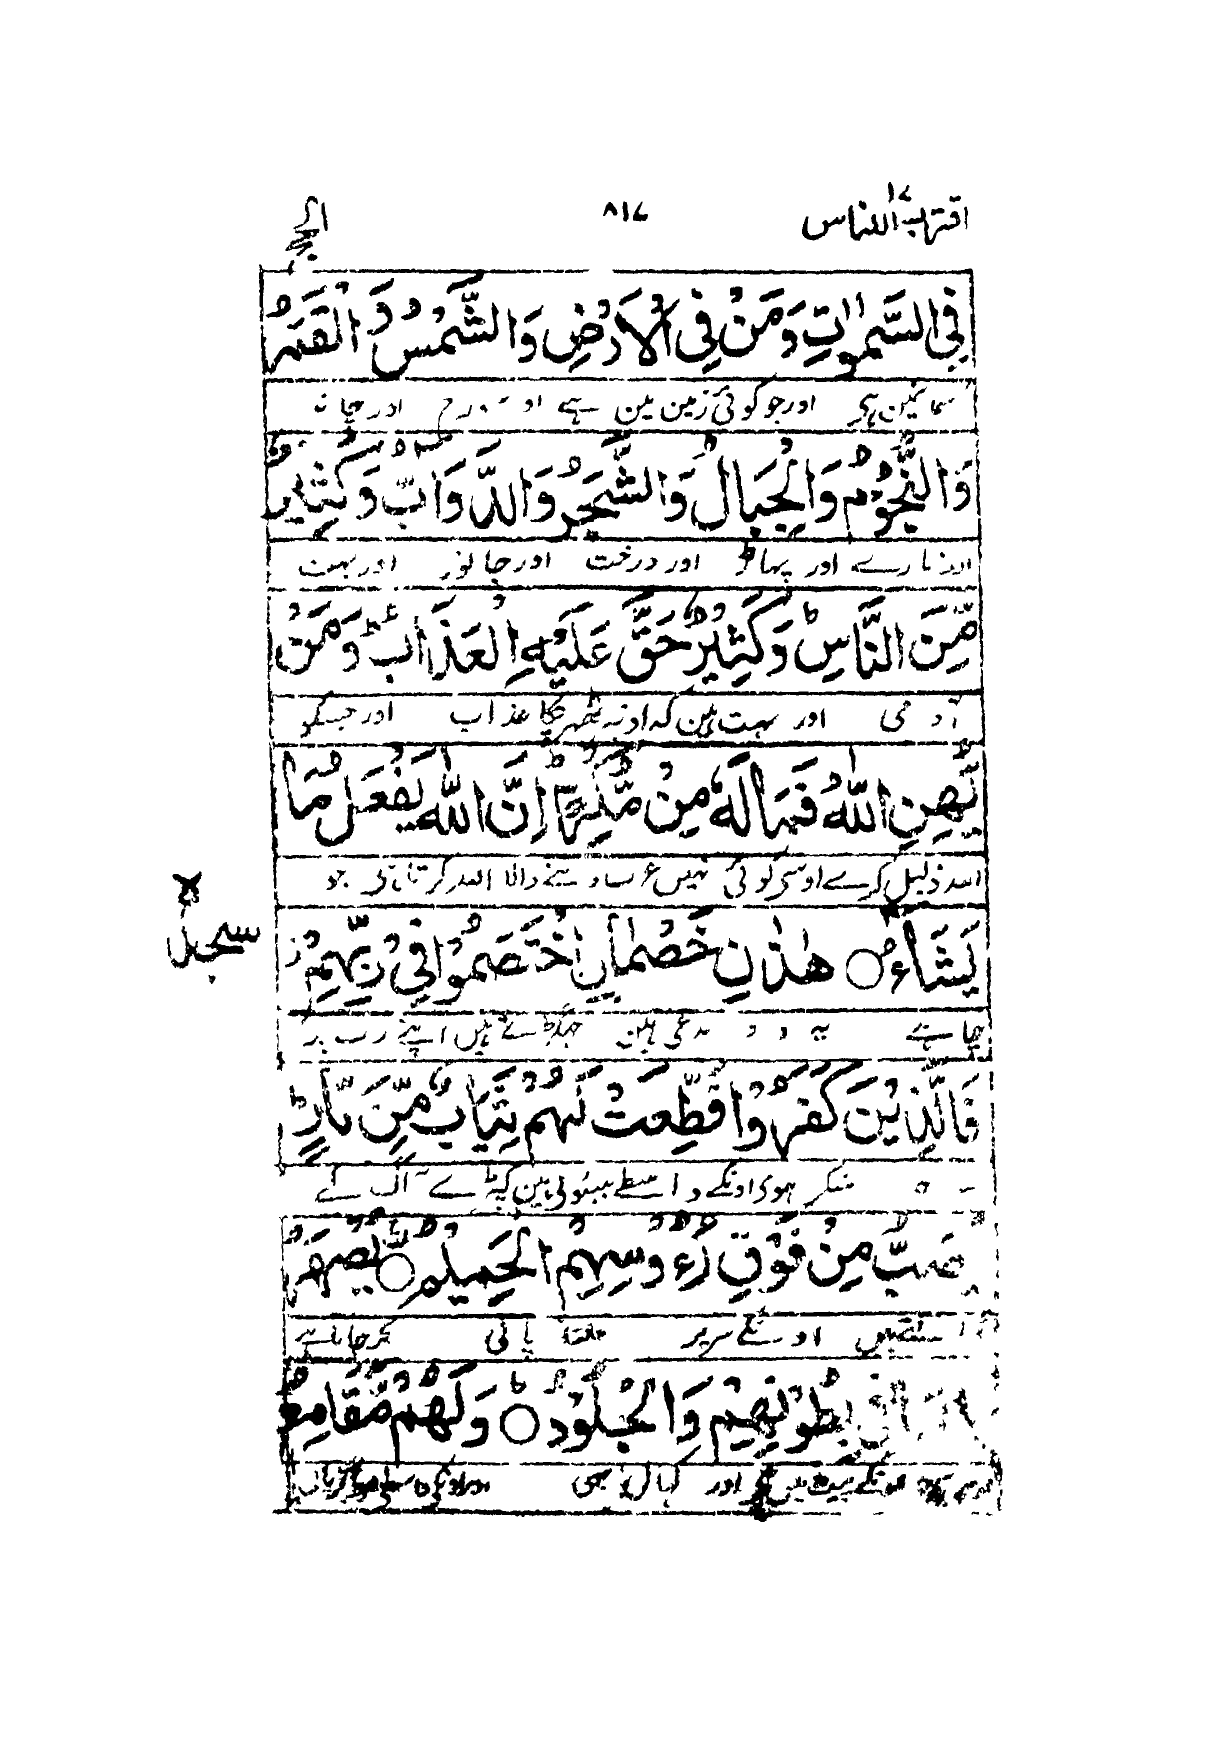 اقترب للناس ١٧
٨١٧
الحج
فِى السَّمٰوٰتِ وَمَنْ فِى الْاَرْضِ وَالشَّمْسُ وَالْقَمَرُ
اور جو کوئی زمین مین ہے اور چاند
وَالنُّجُوْمُ وَالْجِبَالُ وَالشَّجَرُ وَالدَّوَآبُّ وَكَثِيْرٌ
اور تارے اور پہاڑ اور درخت اور جانور اور بہت
مِّنَ النَّاسِ ؕ وَكَثِيْرٌ حَقَّ عَلَيْهِ الْعَذَابُ ؕ وَمَنْ
آدمی اور بہت ہین کہ اونپہ ٹھہرچکا عذاب اور جسکو
يُّهِنِ اللّٰهُ فَمَا لَهٗ مِنْ مُّكْرِمٍ ؕ اِنَّ اللّٰهَ يَفْعَلُ مَا
اللہ ذلیل کرے اوسی کوئی نہیں عزت دینے والا اللہ کرتا ہی جو
يَشَآءُ ۝ هٰذٰنِ خَصْمٰنِ اخْتَصَمُوْا فِىْ رَبِّهِمْ ز
السجدة
چاہے یہ دو مدعی ہین جھگڑتے ہیں اپنے رب پر
فَالَّذِيْنَ كَفَرُوْا قُطِّعَتْ لَهُمْ ثِيَابٌ مِّنْ نَّارٍ ؕ
منکر ہوی اونکے واسطے بیونتی ہین کپڑے آگ کے
يُصَبُّ مِنْ فَوْقِ رُءُوْسِهِمُ الْحَمِيْمُ ۝ يُصْهَرُ
ڈالتےہیں اونکے سرپر جلتا پانی
بِهٖ مَا فِىْ بُطُوْنِهِمْ وَالْجُلُوْدُ ؕ ۝ وَلَهُمْ مَّقَامِعُ
اونکے پیٹ میں ہی اور کھال بھی